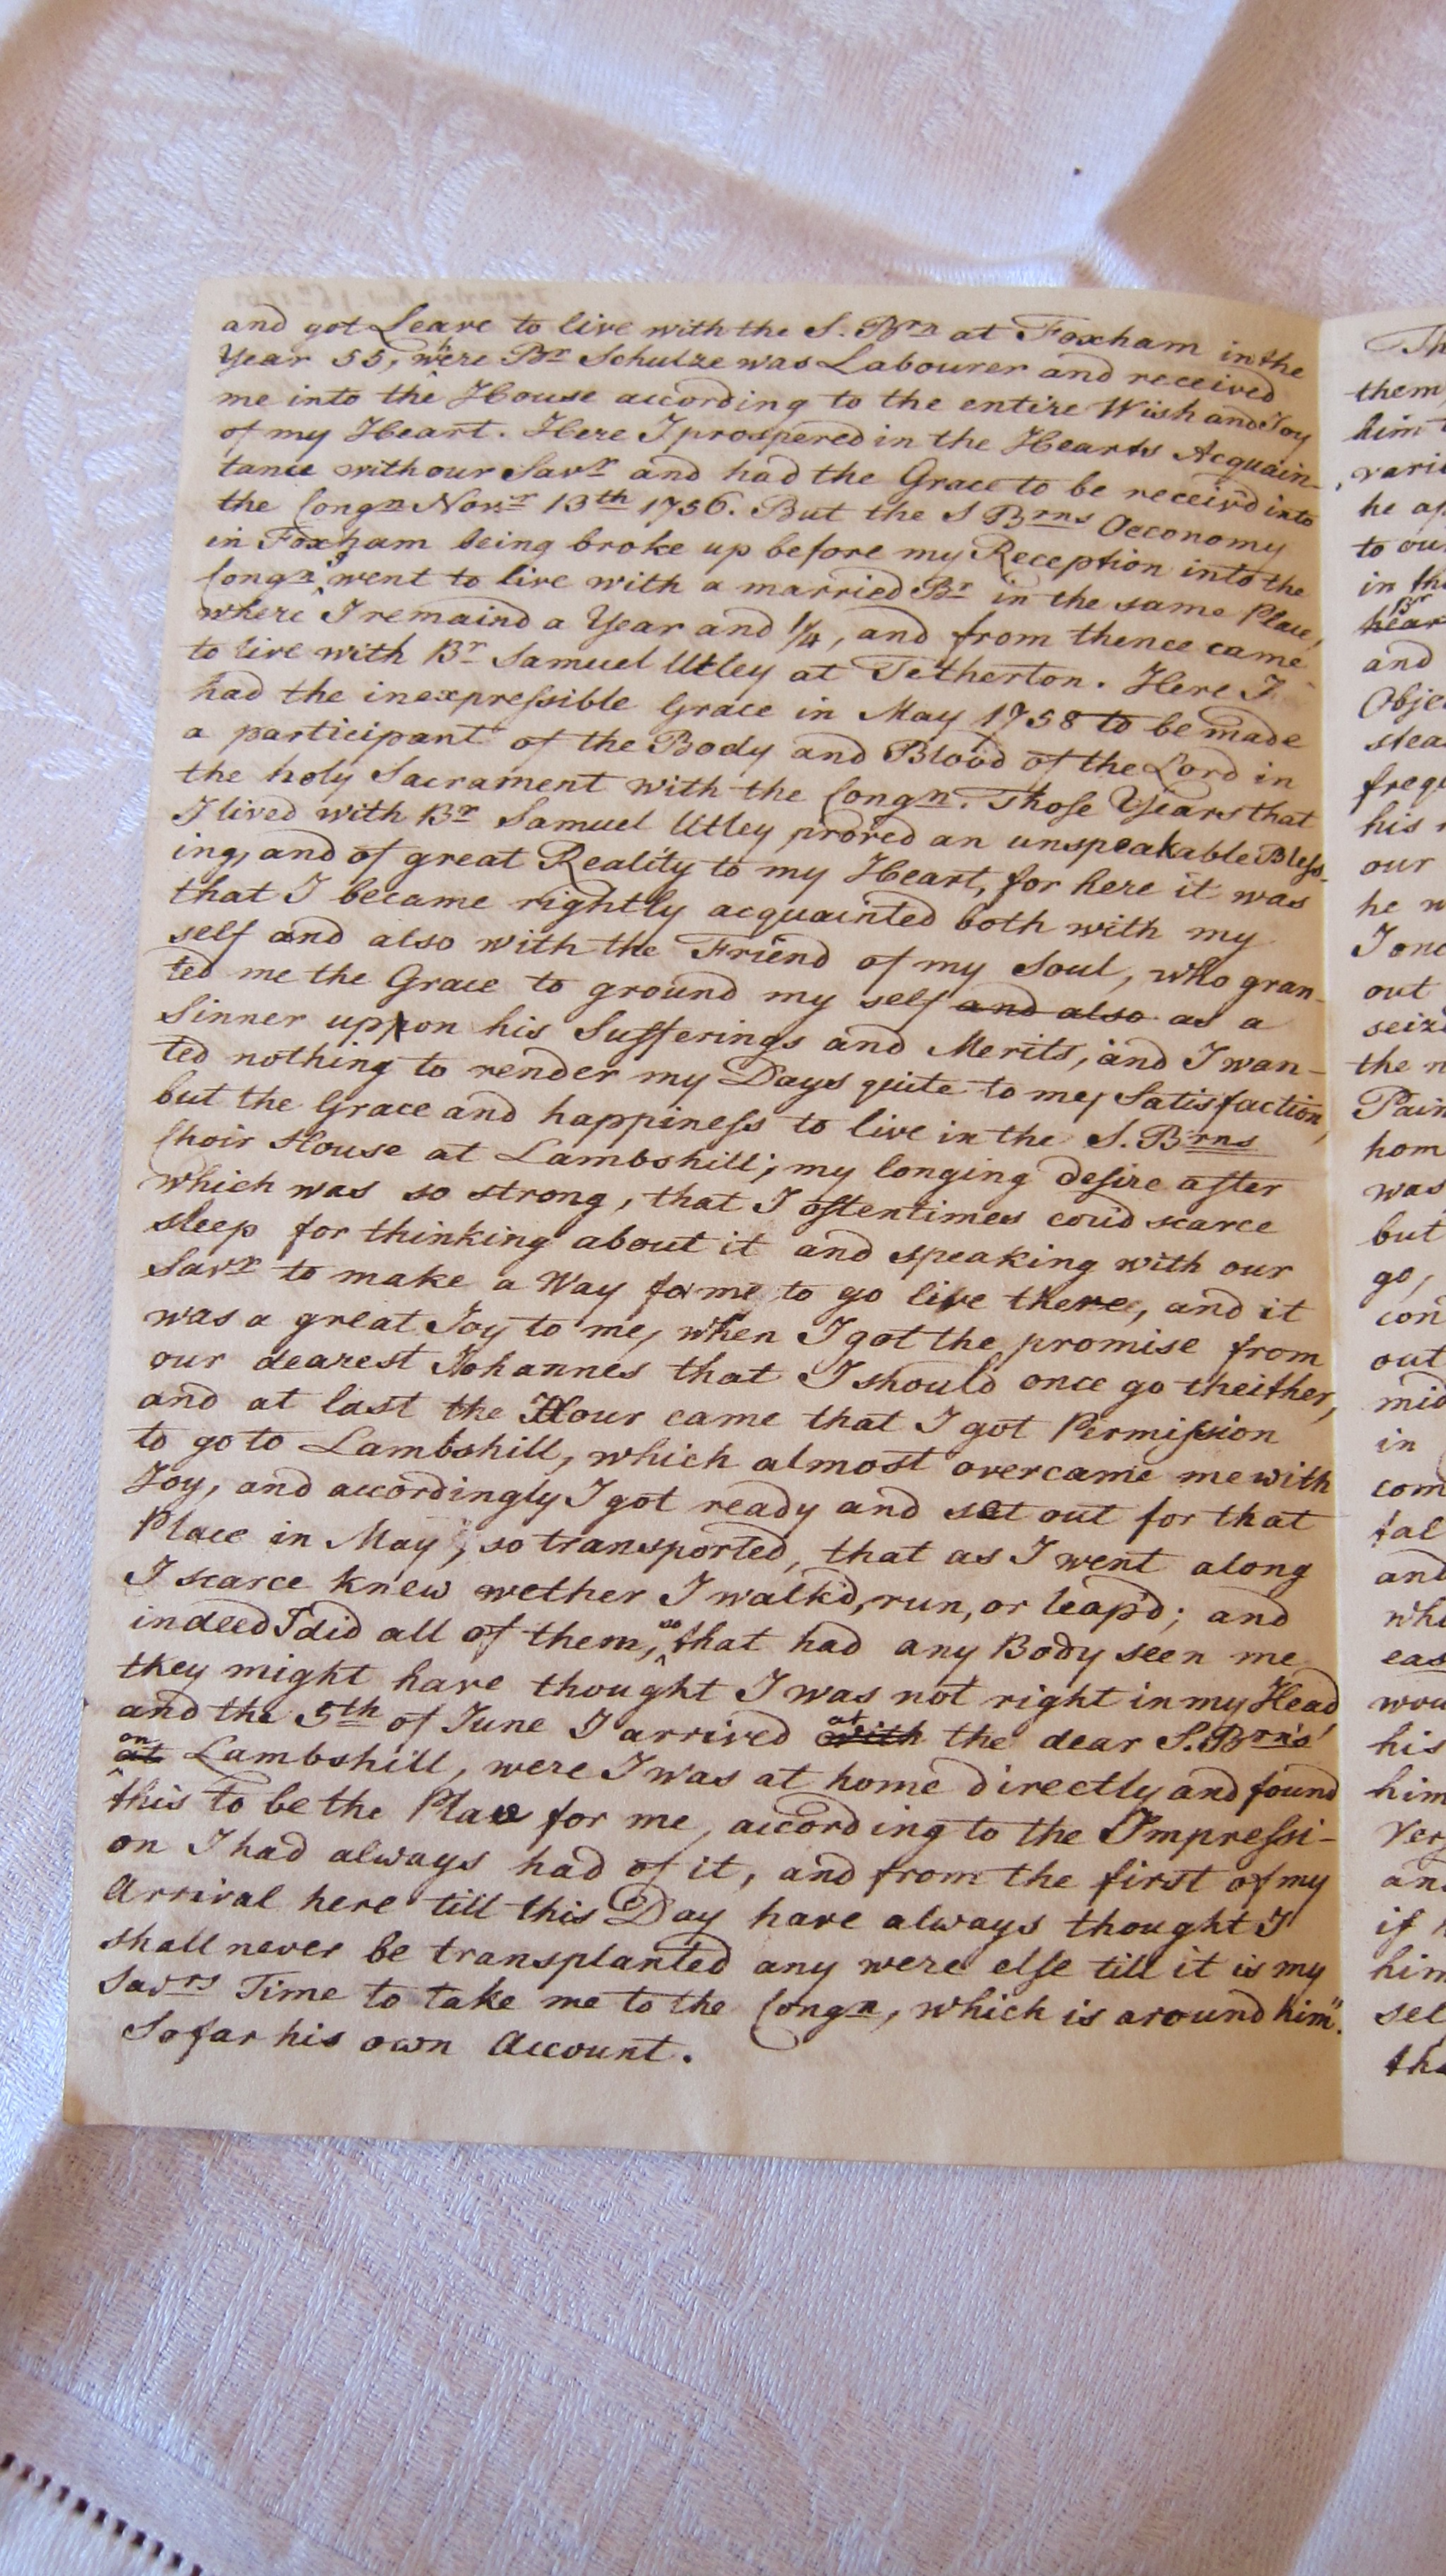 and got Leave to live with the S. Brn at Foxham in the
Year 55, where Br Schulze was Labourer and received
me into the House according to the entire Wish and Joy
of my Heart. Here I prospered in the Hearts Acquain-
tance with our Savr and had the Grace to be receiv'd into
the Congn Novr 13th 1756. But the S Brns Oeconomy
in Foxham being broke up before my Reception into the
Congn I went to live with a married Br in the same Place,
where I remaind a Year and 1/4, and from thence came
to live with Br Samuel Utley at Tetherton. Here I
had the inexpressible Grace in May 1758 to be made
a participant of the Body and Blood of the Lord in
the holy Sacrament with the Congn. Those Years that
I lived with Br Samuel Utley proved an unspeakable Bless-
ing, and of great Reality to my Heart, for here it was
that I became rightly acquainted both with my
self and also with the Friend of my Soul, who gran-
ted me the Grace to ground my self and also as a
Sinner uppon his Sufferings and Merits, and I wan-
ted nothing to render my Days quite to my Satisfaction,
but the Grace and happiness to live in the S. Brns
Choir House at Lambshill; my longing desire after
which was so strong, that I oftentimes cou'd scarce
sleep for thinking about it and speaking with our
Savr to make a Way for me to go live there, and it
was a great Joy to me, when I got the promise from
our dearest Johannes that I should once go theither,
and at last the Hour came that I got Permission
to go to Lambshill, which almost overcame me with
Joy, and accordingly I got ready and set out for that
Place in May, so transported, that as I went along
I scarce knew wether I walk'd, run, or leap'd; and
indeed I did all of them, so that had any Body seen me
they might have thought I was not right in my Head,
and the 5th of June I arrived with at the dear S. Brn's
at on Lambshill, were I was at home directly and found
this to be the Place for me, according to the Impressi-
on I had always had of it, and from the first of my
Arrival here till this Day have always thought I
shall never be transplanted any were else till it is my
Savrs Time to take me to the Congn, which is around him".
So far his own Account.
Th
them
him
vari
he ap
to our
in the
Br
hear
and
Obje
stea
freq
his
our
he w
I onc
out
seiz
the n
Pain
hom
was
but
go,
con
out
mid
in
com
tal
and
who
eas
wou
his
him
Ver
an
if
him
sel
tha